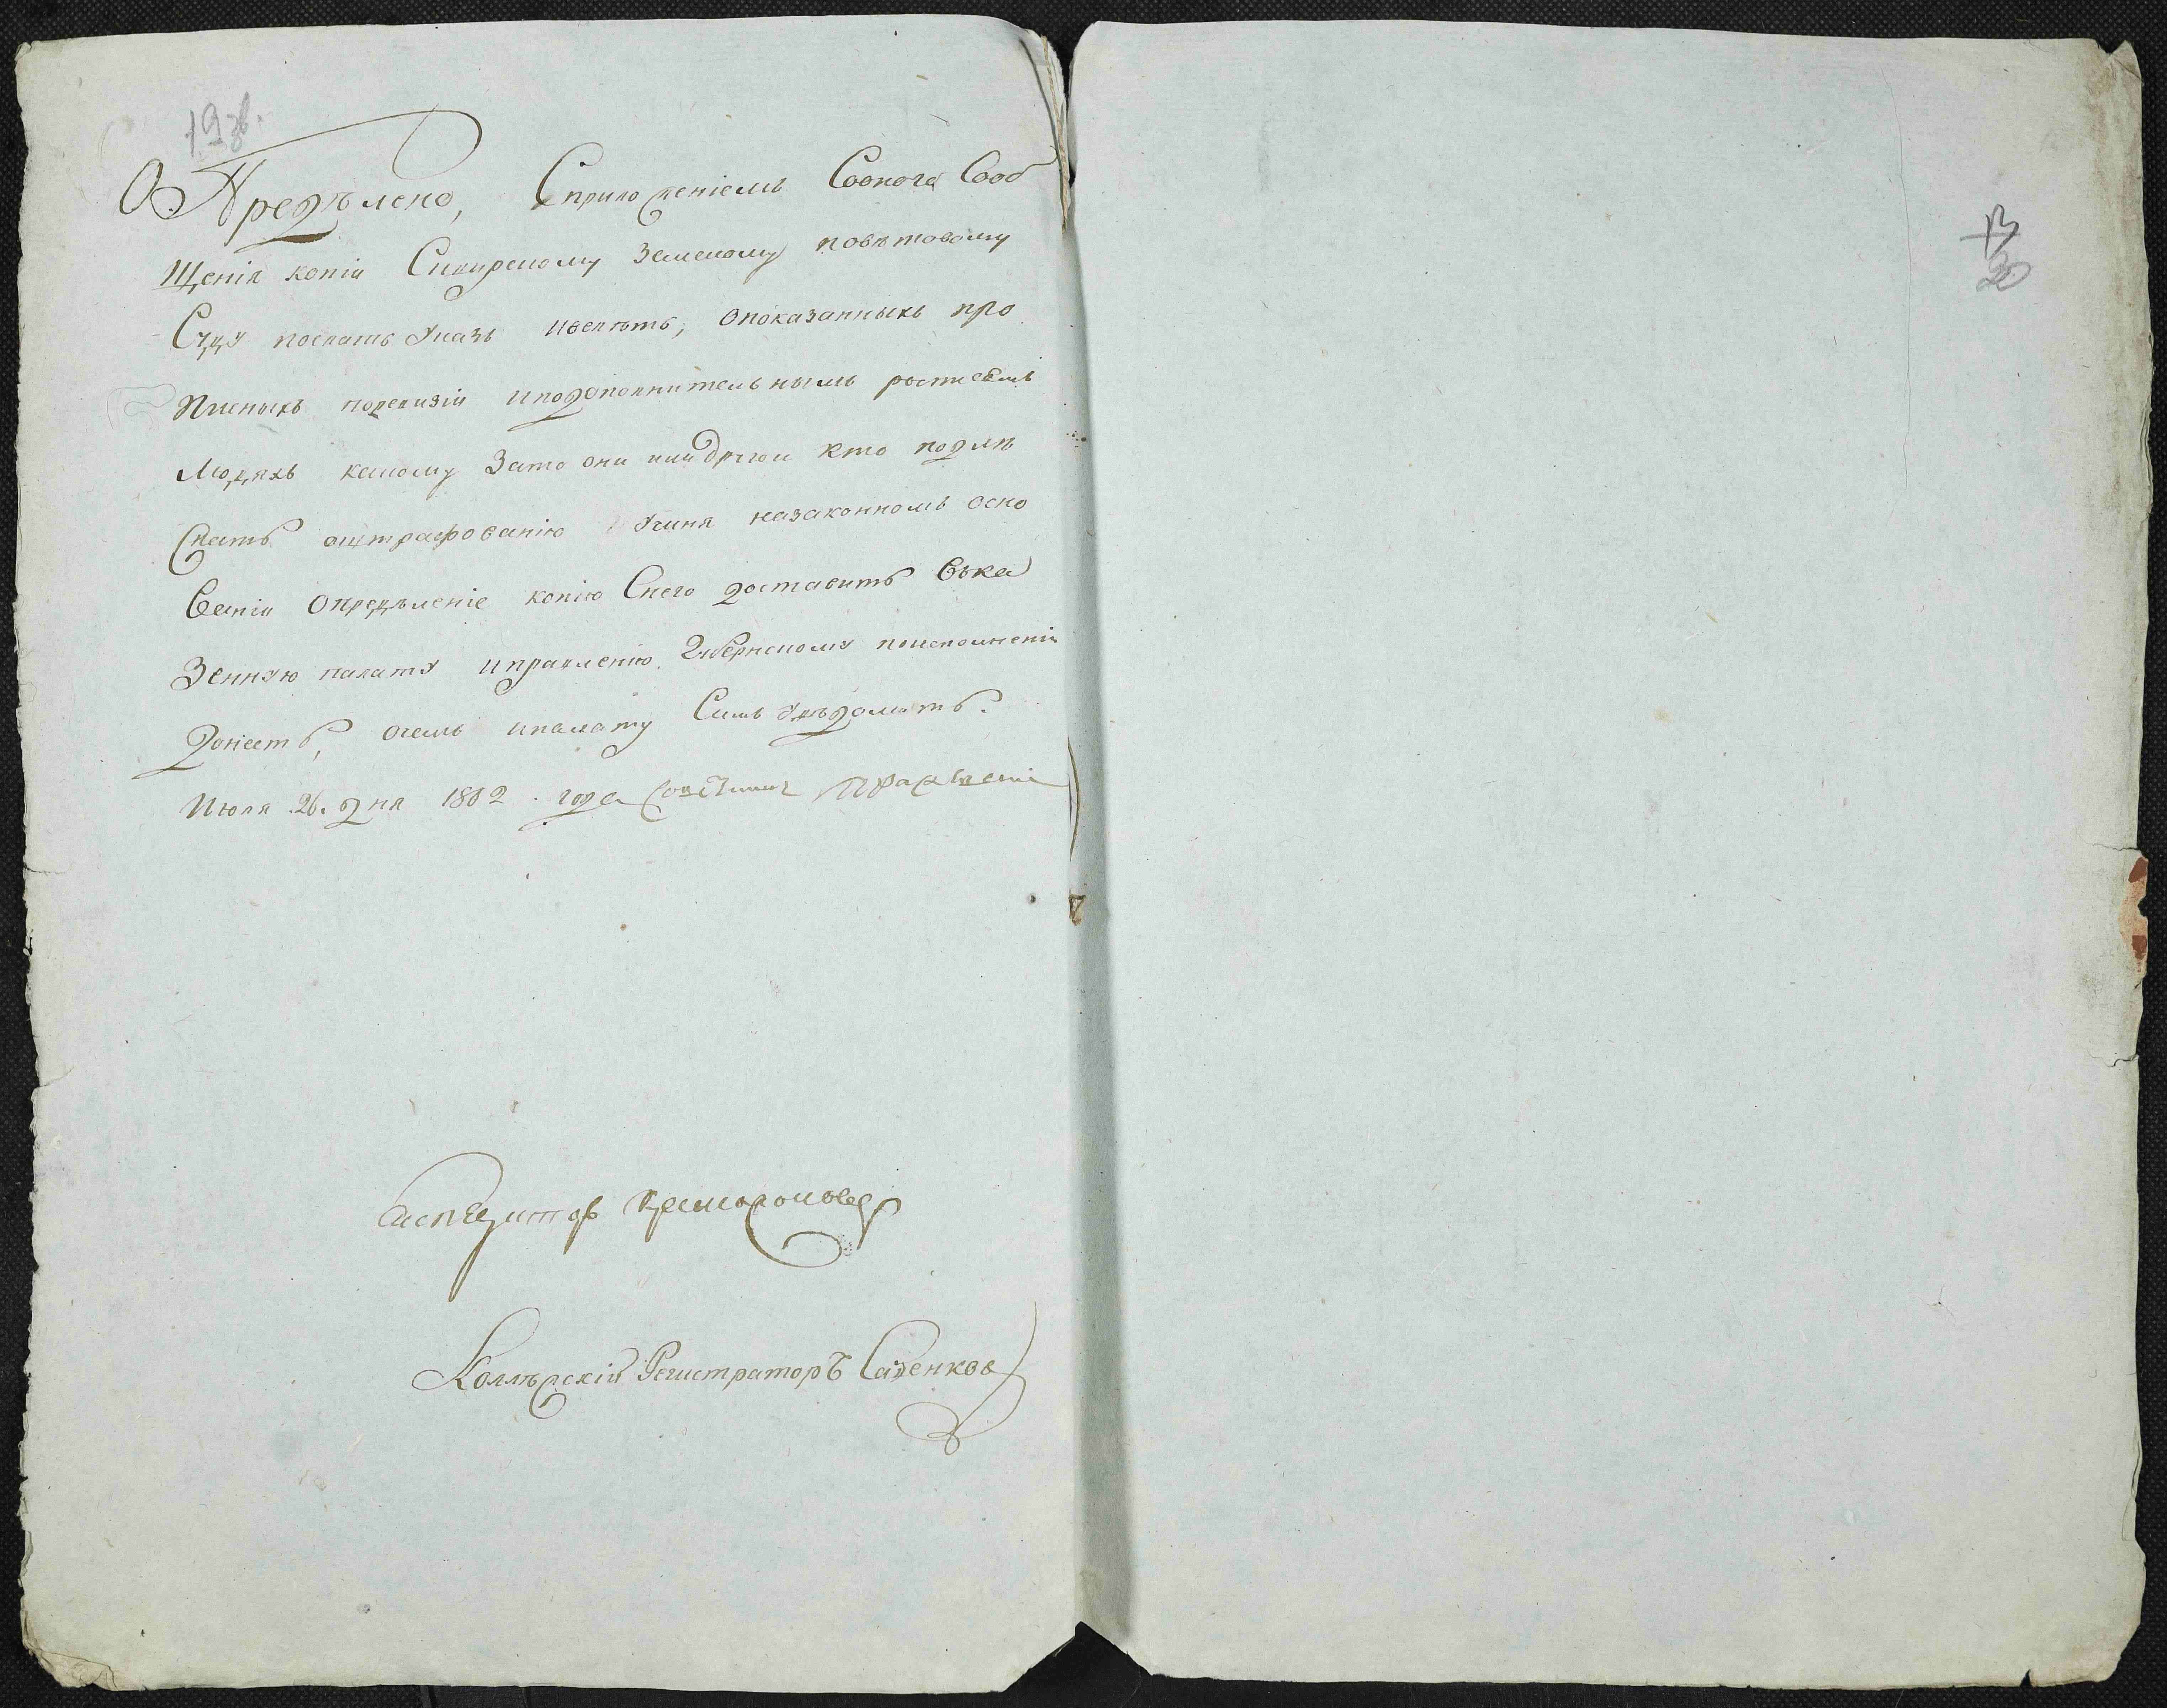 19 зв.
Опредѣлено, Сприложеніемъ Соонога Сооб
Щенія копіи Сквирскому Земскому повѣтовому
Суду послать Указъ ивелѣть, опоказанныхъ про
Писныхъ поревизіи иподополнительнымъ росписямъ
Людяхъ какому Зато они или другои кто подле
Жатъ оштрафованію Учиня назаконномъ осно
Ваніи опредѣленіе копію Снего доставить Вка
Зенную палату иправленію Губернскому поисполненіи
донесть, очемъ ипалату Симъ Увѣдомить.
Июля 26. дня 1802 года
Коллѣжскій Регистраторъ Савенков
13
20